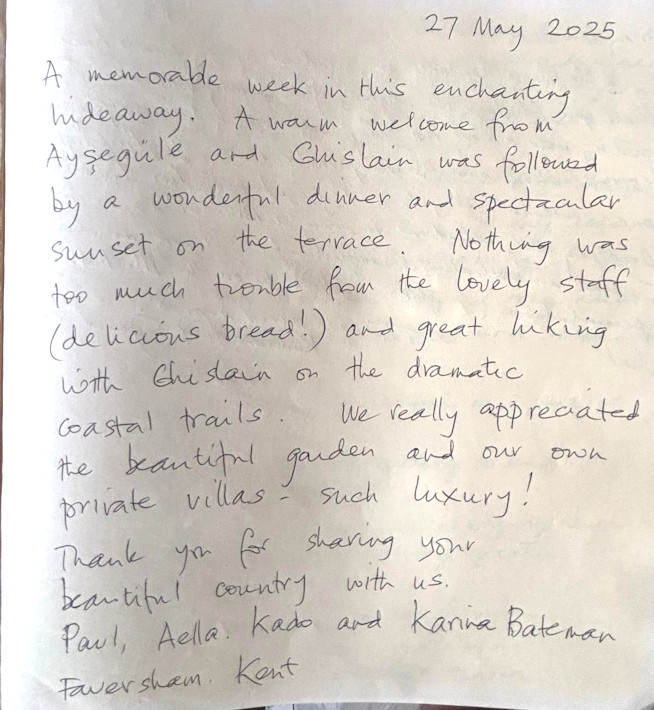 27 May 2025
A memorable week in this enchanting
hideaway. A warm welcome from
Ayşegüle and Ghislain was followed
by a wonderful dinner and spectacular
sunset on the terrace. Nothing was
too much trouble from the lovely staff
(delicious bread!) and great hiking
with Ghislain on the dramatic
coastal trails. We really appreciated
the beautiful garden and our own
private villas - such luxury!
Thank you for sharing your
beautiful country with us.
Paul, Aella. Kado and Karina Bateman
Faversham. Kent